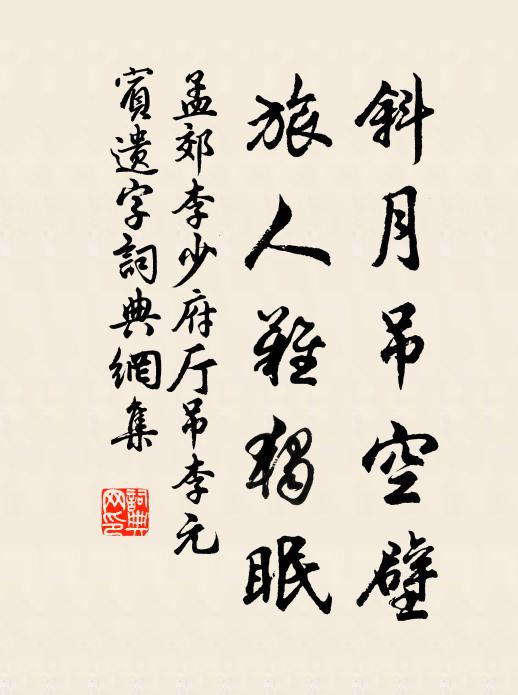 斜月吊空壁
旅人難獨眠
孟郊李少府厅吊李元
賓遺字詞典網集
詞典
网印